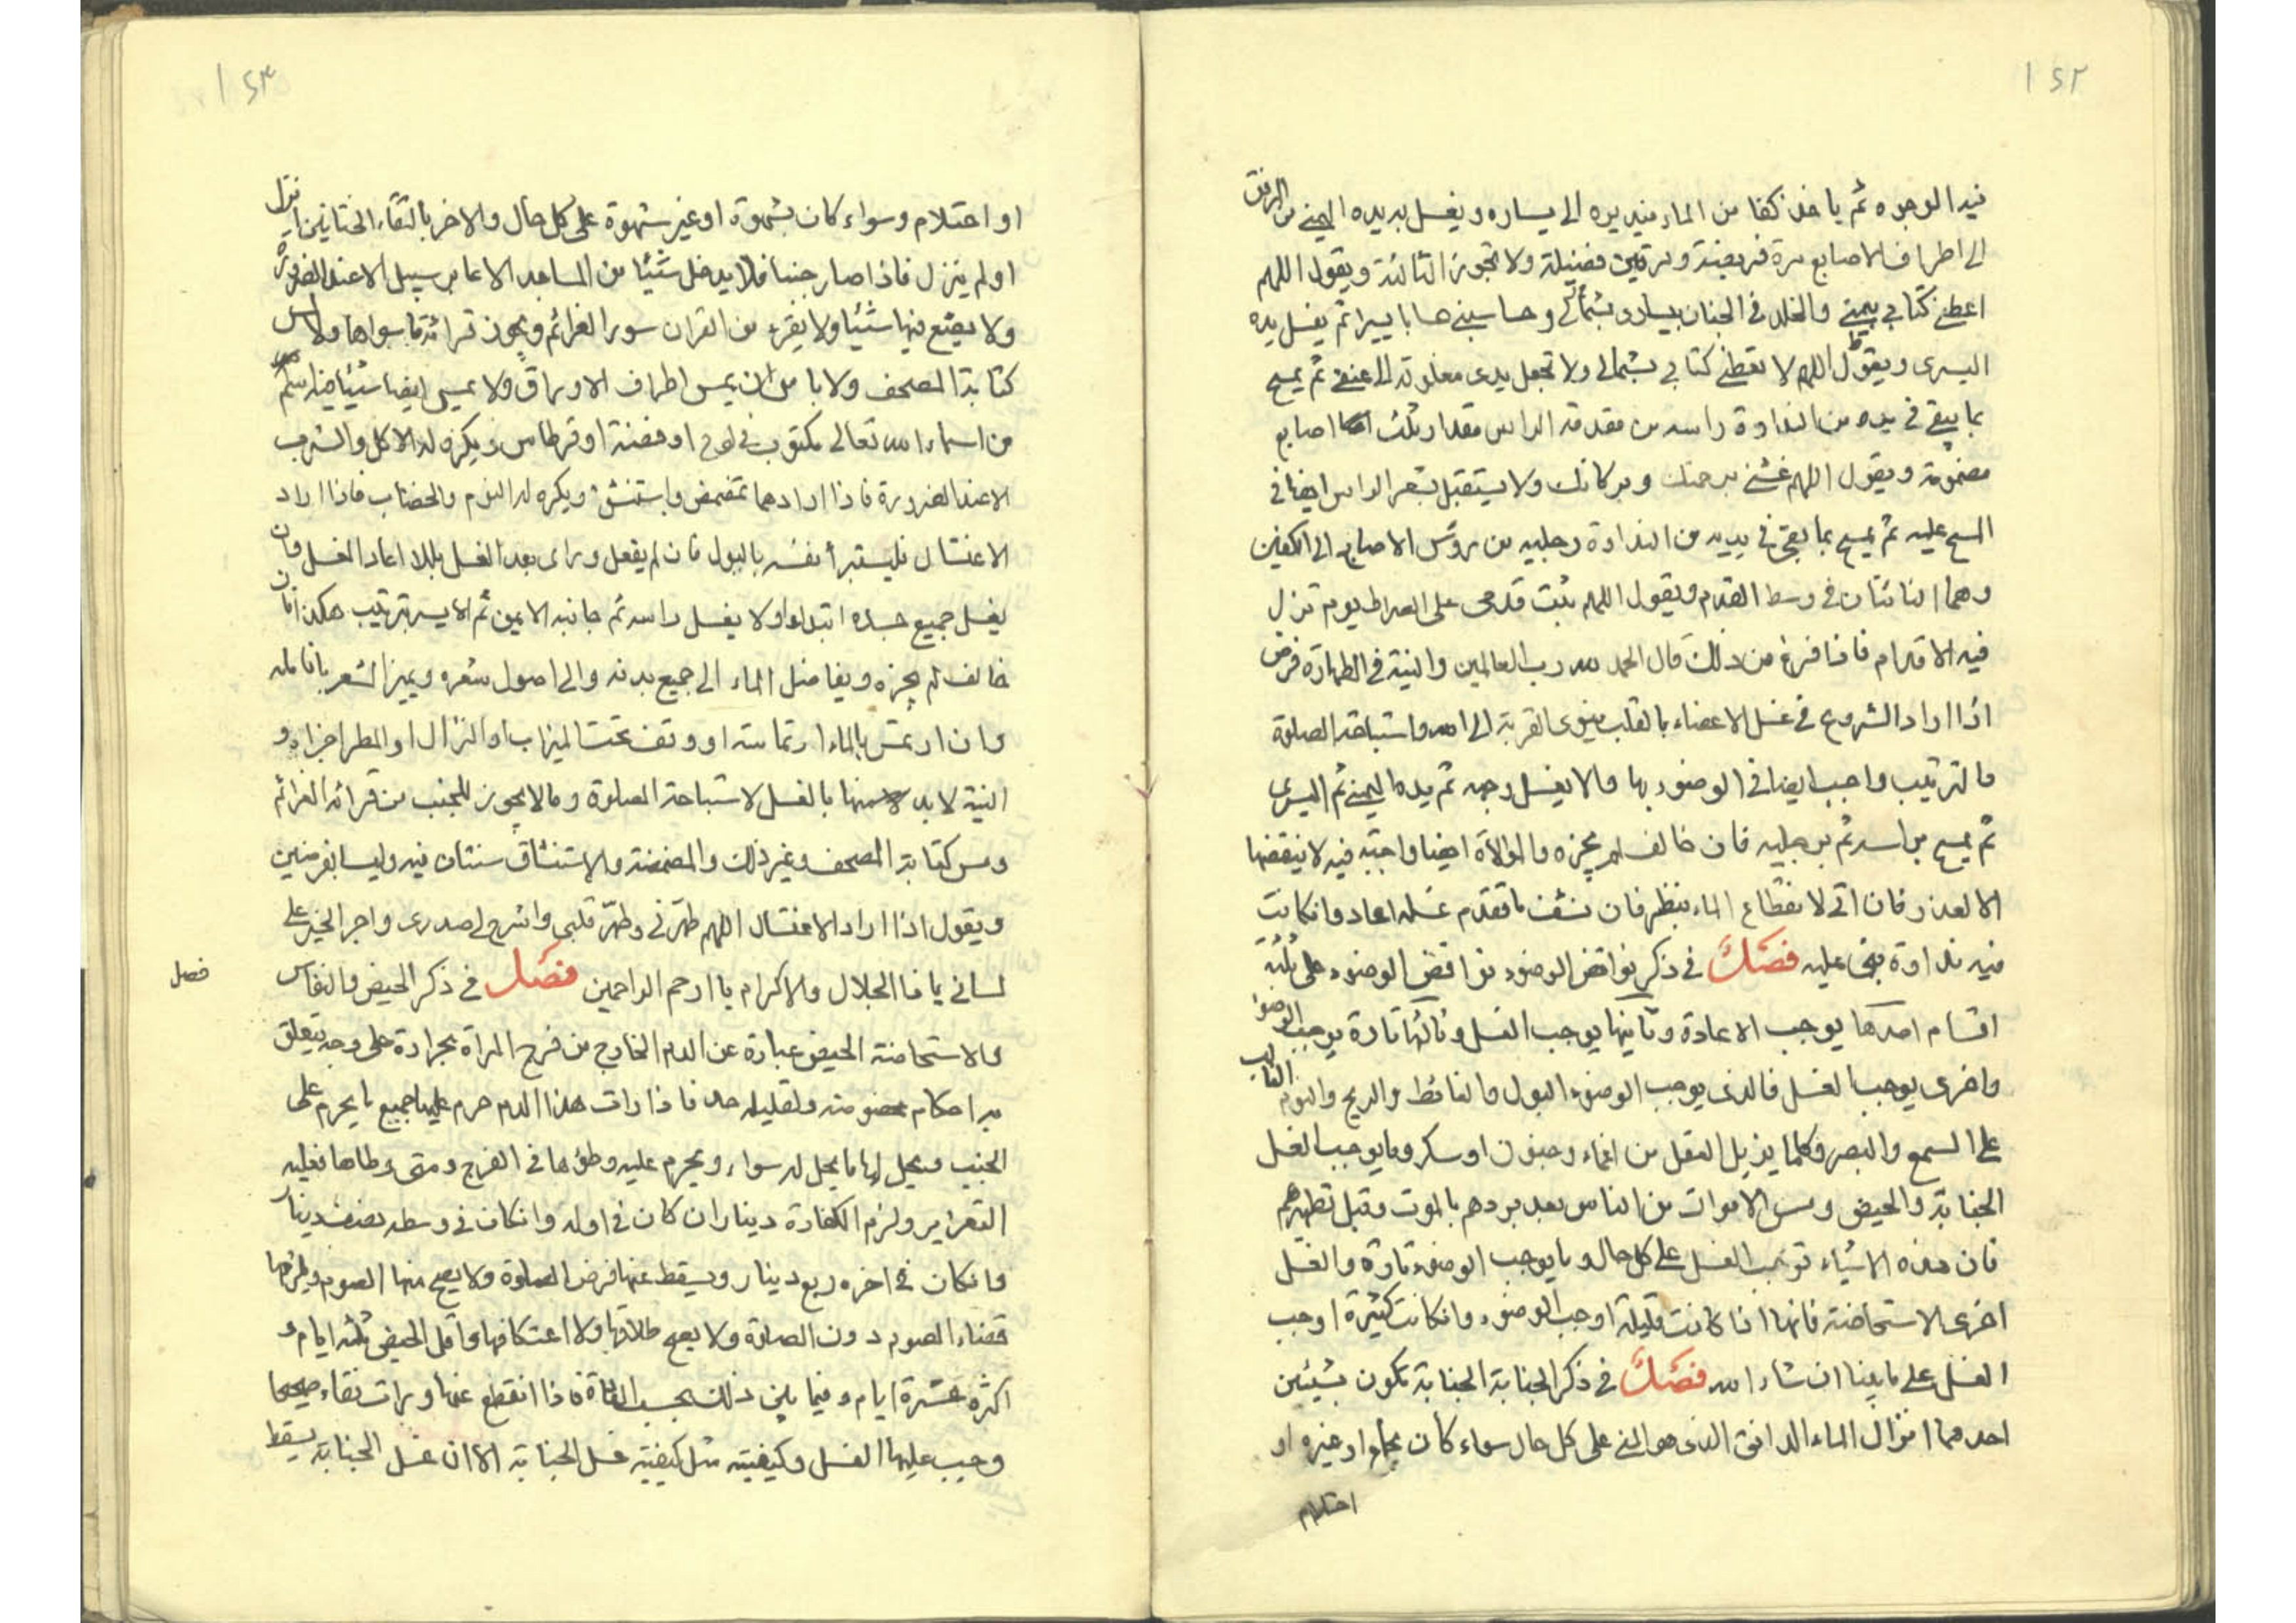 ١٤٢
فيه الوجوه ثم ياخذ كفا من الماء فيديره الى يساره ويغسل به يده اليمنى من المرفق
الى اطراف الاصابع مرة فريضة ومرتين فضيلة ولا تجوز الثالثة ويقول اللهم
اعطنى كتابي بيمينى والخلد في الجنان بيسارى بشمالى وحاسبني حسابا يسيرا ثم يغسل يده
اليسرى ويقول اللهم لا تعطني كتابي بشمالى ولا تجعل يدى مغلولة الى عنقى ثم يمسح
بما يبقى في يده من النداوة راسه من مقدمة الراس مقدار ثلث اصابع
مضمومة ويقول اللهم غشنى برحمتك وبركاتك ولا يستقبل بشعر الراس ايضا في
المسح عليه ثم يمسح بما بقى في يديه من النداوة رجليه من رؤس الاصابع الى الكعبين
وهما الناتئان في وسط القدم ويقول اللهم ثبت قدمى على الصراط يوم تزل
فيه الاقدام فاذا فرغ من ذلك قال الحمد لله رب العالمين والنية في الطهارة فرض
اذا اراد الشروع في غسل الاعضاء بالقلب ينوى القربة الى الله واستباحة الصلوة
والترتيب واجب ايضا في الوضوء بها والا يغسل وجهه ثم يده اليمنى ثم اليسرى
ثم يمسح براسه ثم برجليه فان خالف لم يجزه والموالاة ايضا واجبة فيه لا ينقضها
الا لعذر فان اتى لانقطاع الماء ينظر فان نشف ما تقدم غسله اعاد وانكانت
فيه نداوة بنى عليه فصل في ذكر نواقض الوضوء نواقض الوضوء على ثلثة
اقسام احدها يوجب الاعادة وثانيها يوجب الغسل وثالثها تارة يوجب الوضوء
واخرى يوجب الغسل فالذى يوجب الوضوء البول والغائط والريح والنوم الغالب
على السمع والبصر وكلما يزيل العقل من اغماء وجنون او سكر وما يوجب الغسل
الجنابة والحيض ومس الاموات من الناس بعد بردهم بالموت وقبل تطهيرهم
فان هذه الاشياء توجب الغسل على كل حال وما يوجب الوضوء تارة والغسل
اخرى الاستحاضة فانها اذا كانت قليلة اوجب الوضوء وانكانت كثيرة اوجب
الغسل على ما بينا ان شاء الله فصل في ذكر الجنابة الجنابة تكون بشيئين
احدهما انزال الماء الدافق الذى هو المنى على كل حال سواء كان بجماع او غيره او
احتلام
١٤٣
او احتلام وسواء كان بشهوة او غير شهوة على كل حال والاخر بالتقاء الختانين انزل
او لم ينزل فاذا صار جنبا فلا يدخل شيئا من المساجد الا عابر سبيل الا عند الضرورة
ولا يضع فيها شيئا ولا يقرء من القران سور العزائم ويجوز قرائة ما سواها ولا يمس
كتابة المصحف ولا باس ان يمس اطراف الاوراق ولا يمس ايضا شيئا فيه اسم
من اسماء الله تعالى مكتوب في لوح او فضة او قرطاس ويكره له الاكل والشرب
الا عند الضرورة فاذا ارادهما تمضمض واستنشق ويكره له النوم والخضاب فاذا اراد
الاغتسال فليستبرأ نفسه بالبول فان لم يفعل وراى بعد الغسل بللا اعاد الغسل وان
يغسل جميع جسده ابتداء اولا يغسل راسه ثم جانبه الايمن ثم الايسر بترتيب هكذا فان
خالف لم يجزه ويفاضل الماء الى جميع بدنه والى اصول شعره ويميز الشعر بانامله
وان ارتمس بالماء ارتماسة او وقف تحت الميزاب او النزال او المطر اجزاه و
النية لا بد منها بالغسل لاستباحة الصلوة وما لا يجوز للجنب من قرائة العزائم
ومس كتابة المصحف وغير ذلك والمضمضة والاستنشاق سنتان فيه وليسا بفرضين
ويقول اذا اراد الاغتسال اللهم طهرنى وطهر قلبى واشرح لى صدرى واجر الخير على
لسانى يا ذا الجلال والاكرام يا ارحم الراحمين فصل في ذكر الحيض والنفاس
فصل
والاستحاضة الحيض عبارة عن الدم الخارج من فرج المراة بحرارة على وجه يتعلق
به احكام مخصوصة ولقليله حد فاذا رات هذا الدم حرم عليها جميع ما يحرم على
الجنب ويحل لها ما يحل له سواء ويحرم عليه وطؤها في الفرج ومتى وطاها فعليه
التعزير ولزم الكفارة دينار ان كان في اوله وانكان في وسطه نصف دينار
وانكان في اخره ربع دينار ويسقط عنها فرض الصلوة ولا يصح منها الصوم ويلزمها
قضاء الصوم دون الصلوة ولا يصح طلاقها ولا اعتكافها واقل الحيض ثلثة ايام و
اكثره عشرة ايام وفيما بين ذلك بحسب العادة فاذا انقطع عنها ورات نقاء صحيحا
وجب عليها الغسل وكيفيته مثل كيفية غسل الجنابة الا ان غسل الجنابة يسقط